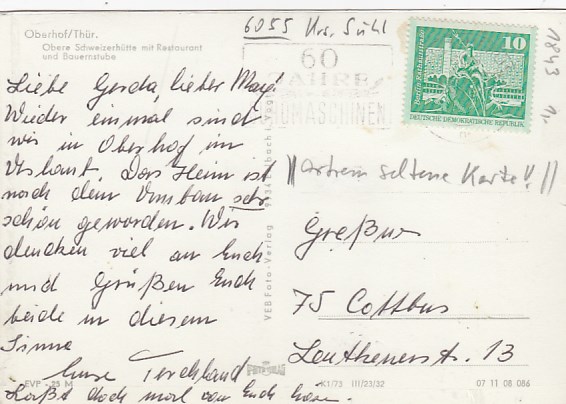 Oberhof/Thür.
Obere Schweizerhütte mit Restaurant
und Bauernstube
Liebe Gerda, lieber Max!
Wieder einmal sind
wir in Oberhof im
Urlaub. Das Heim ist
nach dem Umbau sehr
schön geworden. Wir
dencken viel an Euch
und Grüßen Euch
beide in diesem
Sinne
Eure
Laßt doch mal von Euch hören.
6055 Krs. Suhl
60
JAHRE
10
DEUTSCHE DEMOKRATISCHE REPUBLIK
1843
//extrem seltene Karte!//
75 Cottbus
Leuthenerstr. 13
VEB Foto-Verlag
EVP -,25 M
K1/73 III/23/32
07 11 08 086